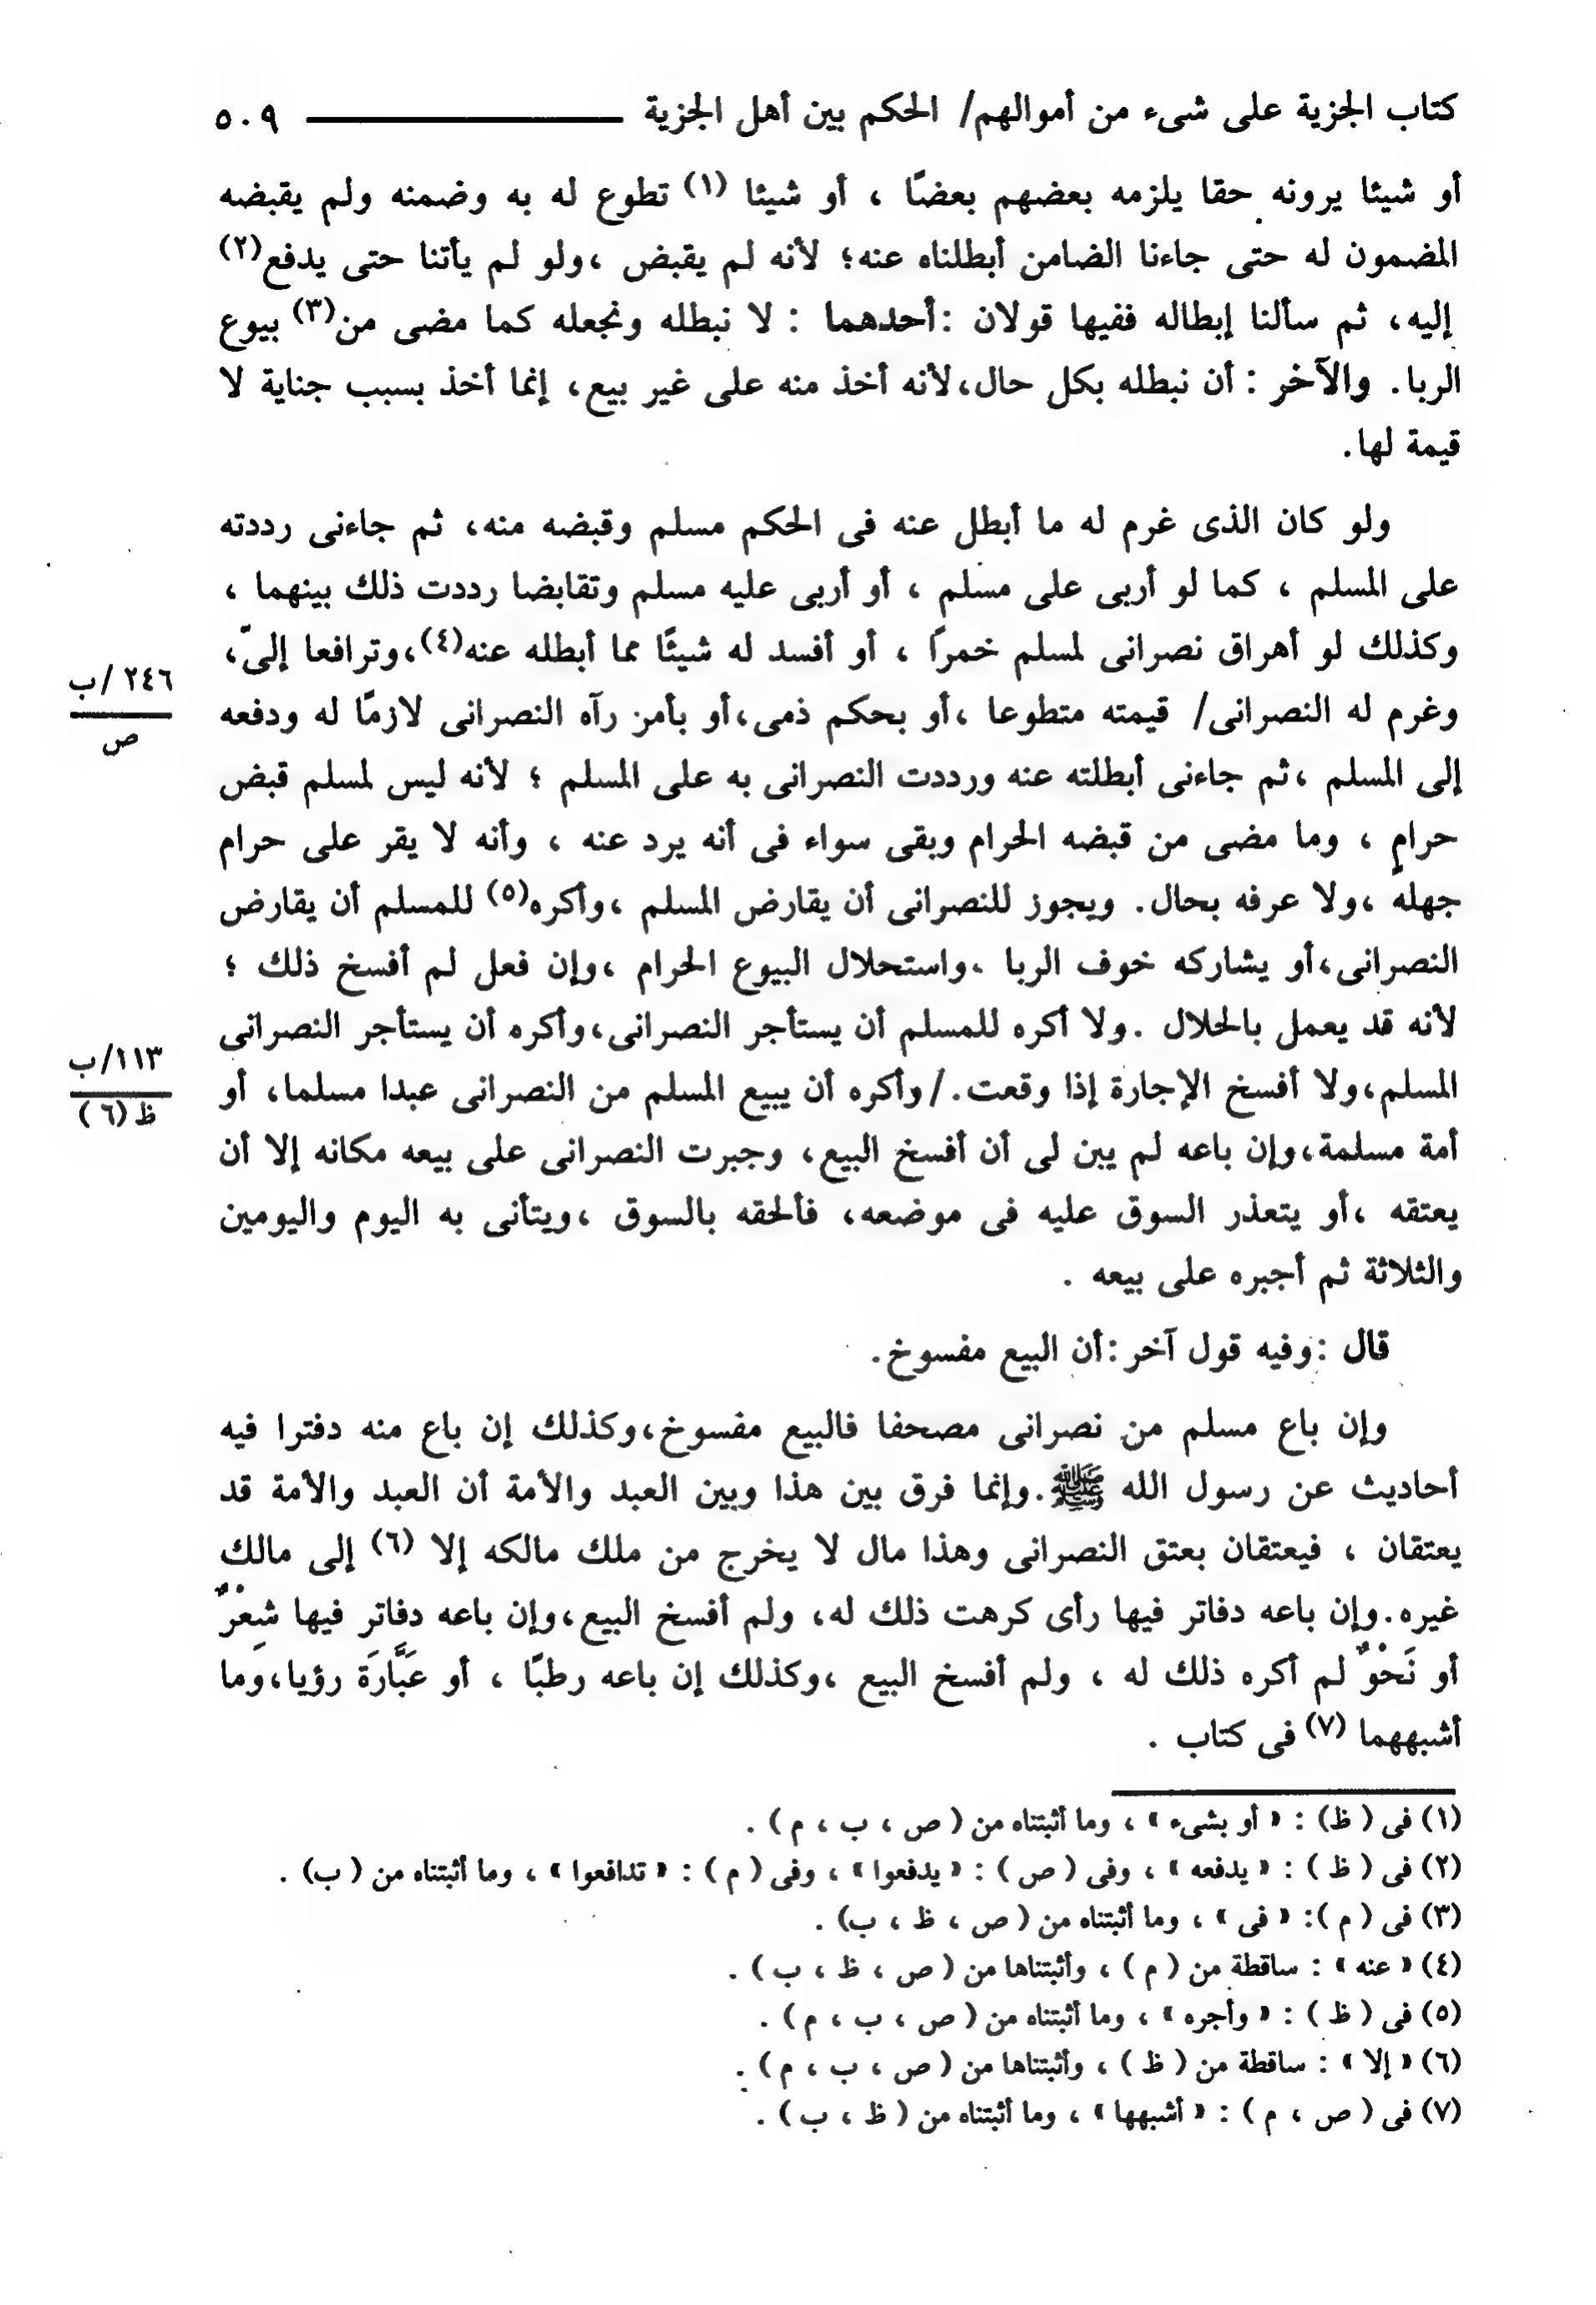 كتاب الجزية على شىء من أموالهم/ الحكم بين أهل الجزية ٥٠٩
أو شيئا يرونه حقا يلزمه بعضهم بعضًا ، أو شيئا (١) تطوع له به وضمنه ولم يقبضه
المضمون له حتى جاءنا الضامن أبطلناه عنه؛ لأنه لم يقبض ،ولو لم يأتنا حتى يدفع(٢)
إليه، ثم سألنا إبطاله ففيها قولان :أحدهما : لا نبطله ونجعله كما مضى من(٣) بيوع
الربا. والآخر : أن نبطله بكل حال،لأنه أخذ منه على غير بيع، إنما أخذ بسبب جناية لا
قيمة لها.
ولو كان الذى غرم له ما أبطل عنه فى الحكم مسلم وقبضه منه، ثم جاءنى رددته
على المسلم ، كما لو أربى على مسلم ، أو أربى عليه مسلم وتقابضا رددت ذلك بينهما ،
وكذلك لو أهراق نصرانى لمسلم خمرًا ، أو أفسد له شيئًا مما أبطله عنه(٤)،وترافعا إلىّ،
٢٤٦ /ب
ص
وغرم له النصرانى/ قيمته متطوعا ،أو بحكم ذمى،أو بأمر رآه النصرانى لازمًا له ودفعه
إلى المسلم ،ثم جاءنى أبطلته عنه ورددت النصرانى به على المسلم ؛ لأنه ليس لمسلم قبض
حرامٍ ، وما مضى من قبضه الحرام وبقى سواء فى أنه يرد عنه ، وأنه لا يقر على حرام
جهله ،ولا عرفه بحال. ويجوز للنصرانى أن يقارض المسلم ،وأكره(٥) للمسلم أن يقارض
النصرانى،أو يشاركه خوف الربا ،واستحلال البيوع الحرام ،وإن فعل لم أفسخ ذلك ؛
لأنه قد يعمل بالحلال .ولا أكره للمسلم أن يستأجر النصرانى،وأكره أن يستأجر النصرانى
١١٣/ب
ظ (٦)
المسلم،ولا أفسخ الإجارة إذا وقعت./وأكره أن يبيع المسلم من النصرانى عبدا مسلما، أو
أمة مسلمة،وإن باعه لم يبن لى أن أفسخ البيع، وجبرت النصرانى على بيعه مكانه إلا أن
يعتقه ،أو يتعذر السوق عليه فى موضعه، فألحقه بالسوق ،ويتأنى به اليوم واليومين
والثلاثة ثم أجبره على بيعه .
قال :وفيه قول آخر :أن البيع مفسوخ.
وإن باع مسلم من نصرانى مصحفا فالبيع مفسوخ،وكذلك إن باع منه دفترا فيه
أحاديث عن رسول الله ﷺ.وإنما فرق بين هذا وبين العبد والأمة أن العبد والأمة قد
يعتقان ، فيعتقان بعتق النصرانى وهذا مال لا يخرج من ملك مالكه إلا (٦) إلى مالك
غيره.وإن باعه دفاتر فيها رأى كرهت ذلك له، ولم أفسخ البيع،وإن باعه دفاتر فيها شِعْرٌ
أو نَحْوٌ لم أكره ذلك له ، ولم أفسخ البيع ،وكذلك إن باعه رطبًا ، أو عَبَّارَة رؤيا،وما
أشبههما (٧) فى كتاب .
(١) فى ( ظ) : « أو بشىء » ، وما أثبتناه من ( ص ، ب ، م ) .
(٢) فى ( ظ ) : « يدفعه » ، وفى ( ص ) : « يدفعوا » ، وفى ( م ) : « تدافعوا » ، وما أثبتناه من ( ب) .
(٣) فى ( م ): « فى » ، وما أثبتناه من ( ص ، ظ ، ب) .
(٤) « عنه » : ساقطة من ( م ) ، وأثبتناها من ( ص ، ظ ، ب ) .
(٥) فى ( ظ ) : « وأجره » ، وما أثبتناه من ( ص ، ب ، م ) .
(٦) « إلا » : ساقطة من ( ظ ) ، وأثبتناها من ( ص ، ب ، م ) .
(٧) فى ( ص ، م ) : « أشبهها » ، وما أثبتناه من ( ظ ، ب ) .